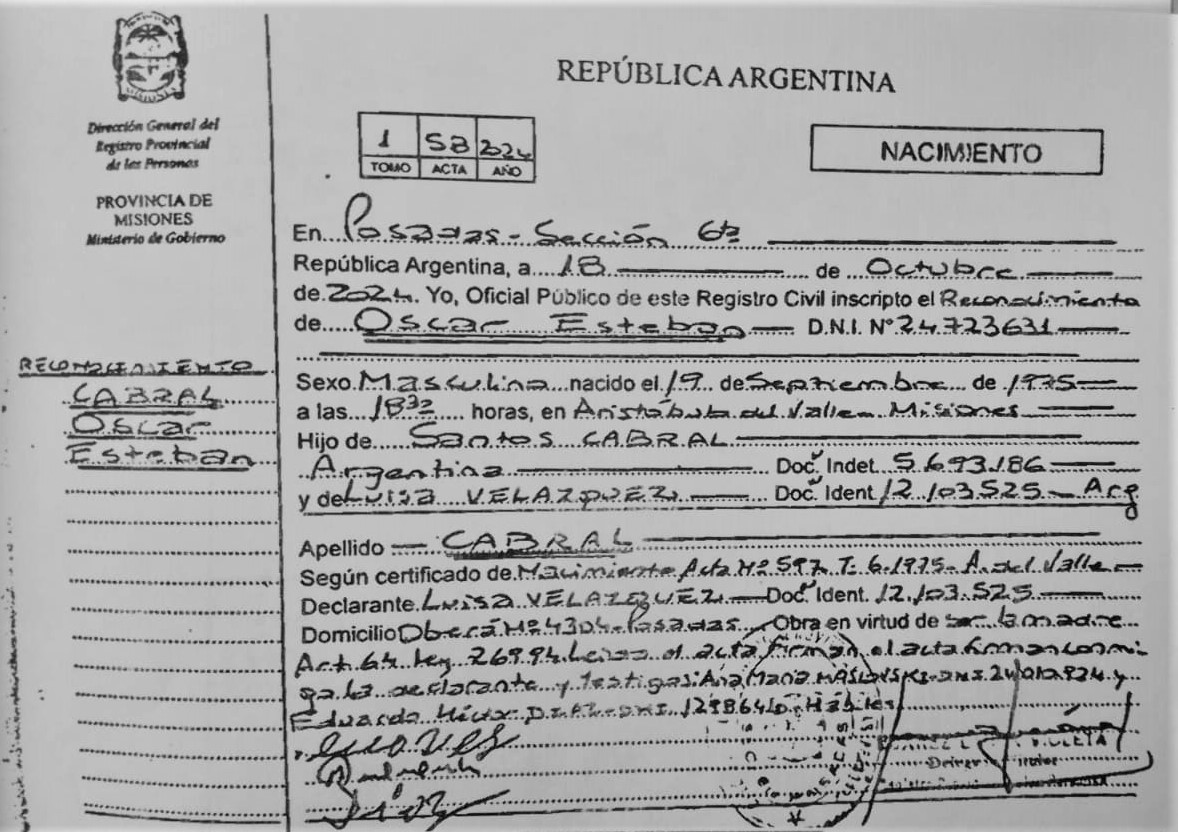 MISIONES
Dirección General del
Registro Provincial
de las Personas
PROVINCIA DE
MISIONES
Ministerio de Gobierno
RECONOCIMIENTO
CABRAL
Oscar
Esteban
REPÚBLICA ARGENTINA
1 58 2024
TOMO ACTA AÑO
NACIMIENTO
En Posadas - Sección 6ta
República Argentina, a 18 de Octubre
de 2024. Yo, Oficial Público de este Registro Civil inscripto el Reconocimiento
de Oscar Esteban D.N.I. N° 24.723631
Sexo Masculino nacido el 19 de Septiembre de 1975
a las 18 horas, en Aristóbulo del Valle Misiones
Hijo de Santos CABRAL
Argentina Doc. Indet 5.693.186
y de Luisa VELAZQUEZ Doc. Ident 12.103.525 - Arg
Apellido CABRAL
Según certificado de Nacimiento Acta Nº 597 T: 6.1975 - A. del Valle
Declarante Luisa VELAZQUEZ Doc. Ident. 12.103.525
Domicilio Oberá Nº 4304 - Posadas Obra en virtud de ser la madre
Art. 64 Ley 26994 Leida el acta firman el acta firman conmi
go la declarante y testigos: Ana Maria MASLOWSKI - DNI. y
Eduardo DIAZ - DNI. Hábiles